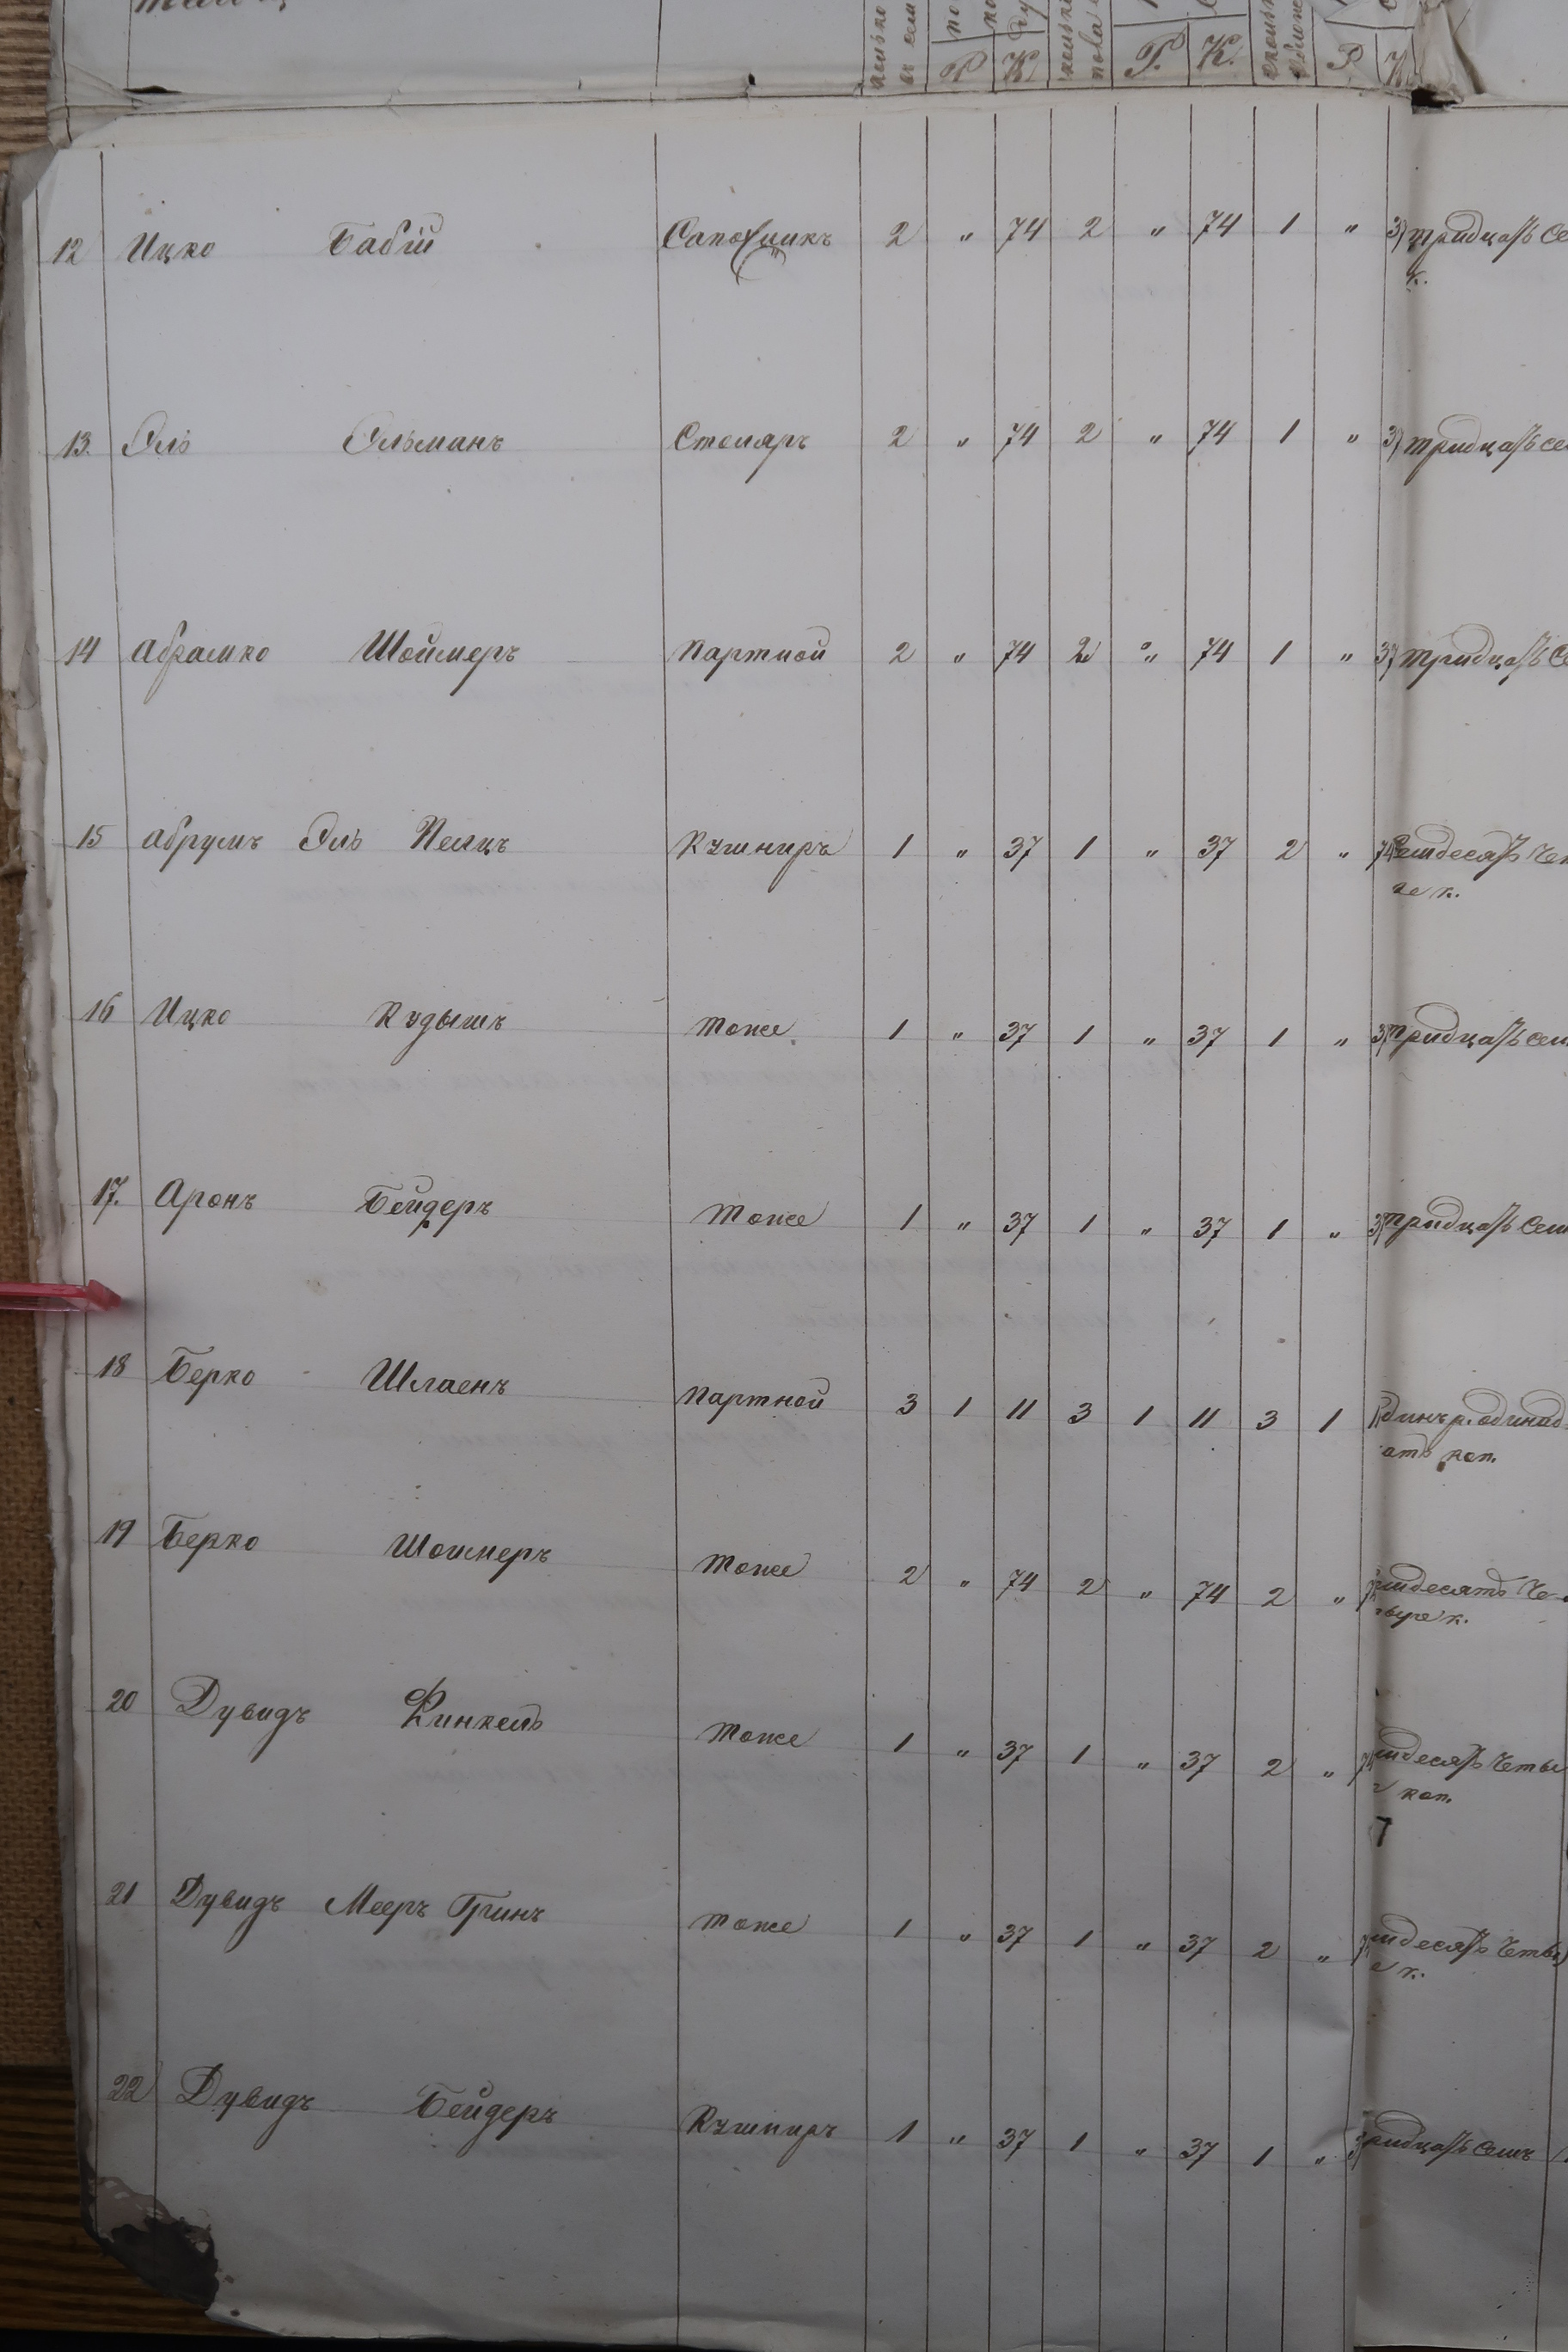 Р К Р. К. Р К
12 Ицко Бабій Сапожникъ 2 " 74 2 " 74 1 " 37 тридцать се
к.
13. Эль Эльманъ Столяръ 2 " 74 2 " 74 1 " 37 тридцать се
14 Абрамко Шоймеръ Партной 2 " 74 2 " 74 1 " 37 тридцать се
15 Абрумъ Эль Пелцъ Кушниръ 1 " 37 1 " 37 2 " 74 Семдесять че
ре к.
16 Ицко Кудышъ тоже 1 " 37 1 " 37 1 " 37 тридцать сем
17. Аронъ Бейдеръ тоже 1 " 37 1 " 37 1 " 37 тридцать сем
18 Берко Шлаенъ Партной 3 1 11 3 1 11 3 1 динъ р. одинад
ать коп.
19 Берко Шоймеръ тоже 2 " 74 2 " 74 2 " 7 мдесять че
тыре к.
20 Дувидъ Финкель тоже 1 " 37 1 " 37 2 " 74 мдесять четы
коп.
21 Дувидъ Мееръ Гринъ тоже 1 " 37 1 " 37 2 " 7 мдесять четы
е к.
22 Дувидъ Бейдеръ Кушниръ 1 " 37 1 " 37 1 " 3 ридцать семъ